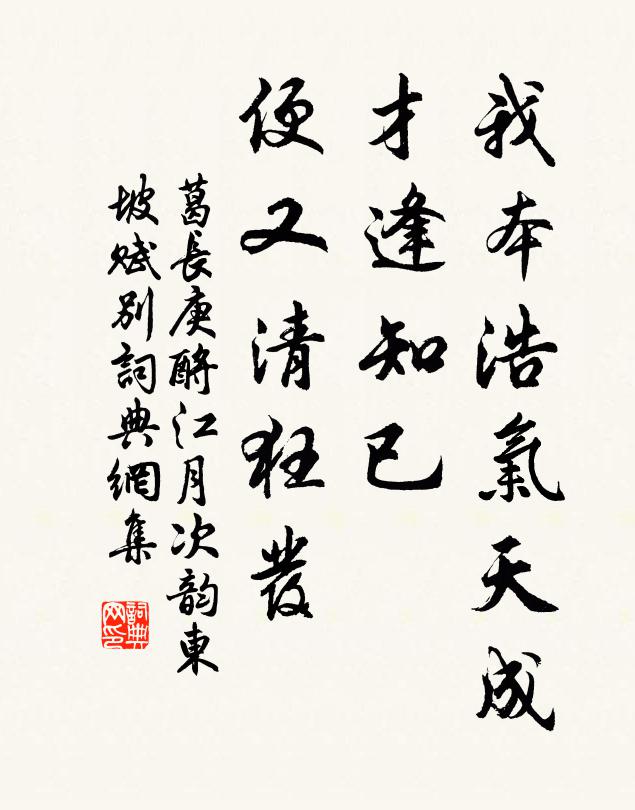 我本浩氣天成
才逢知已
便又清狂發
葛長庚酹江月次韵東
坡賦别詞典網集
詞典
网印